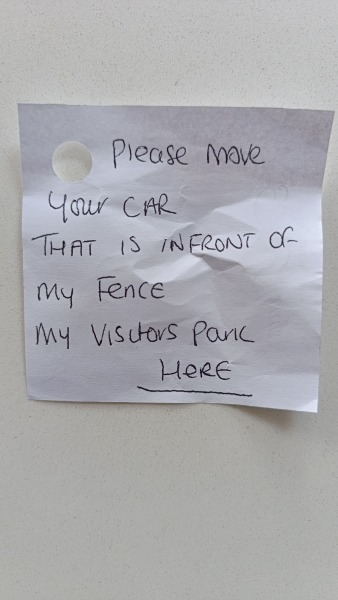 Please move
your CAR
THAT IS INFRONT OF
my Fence
my Visitors Park
HERE